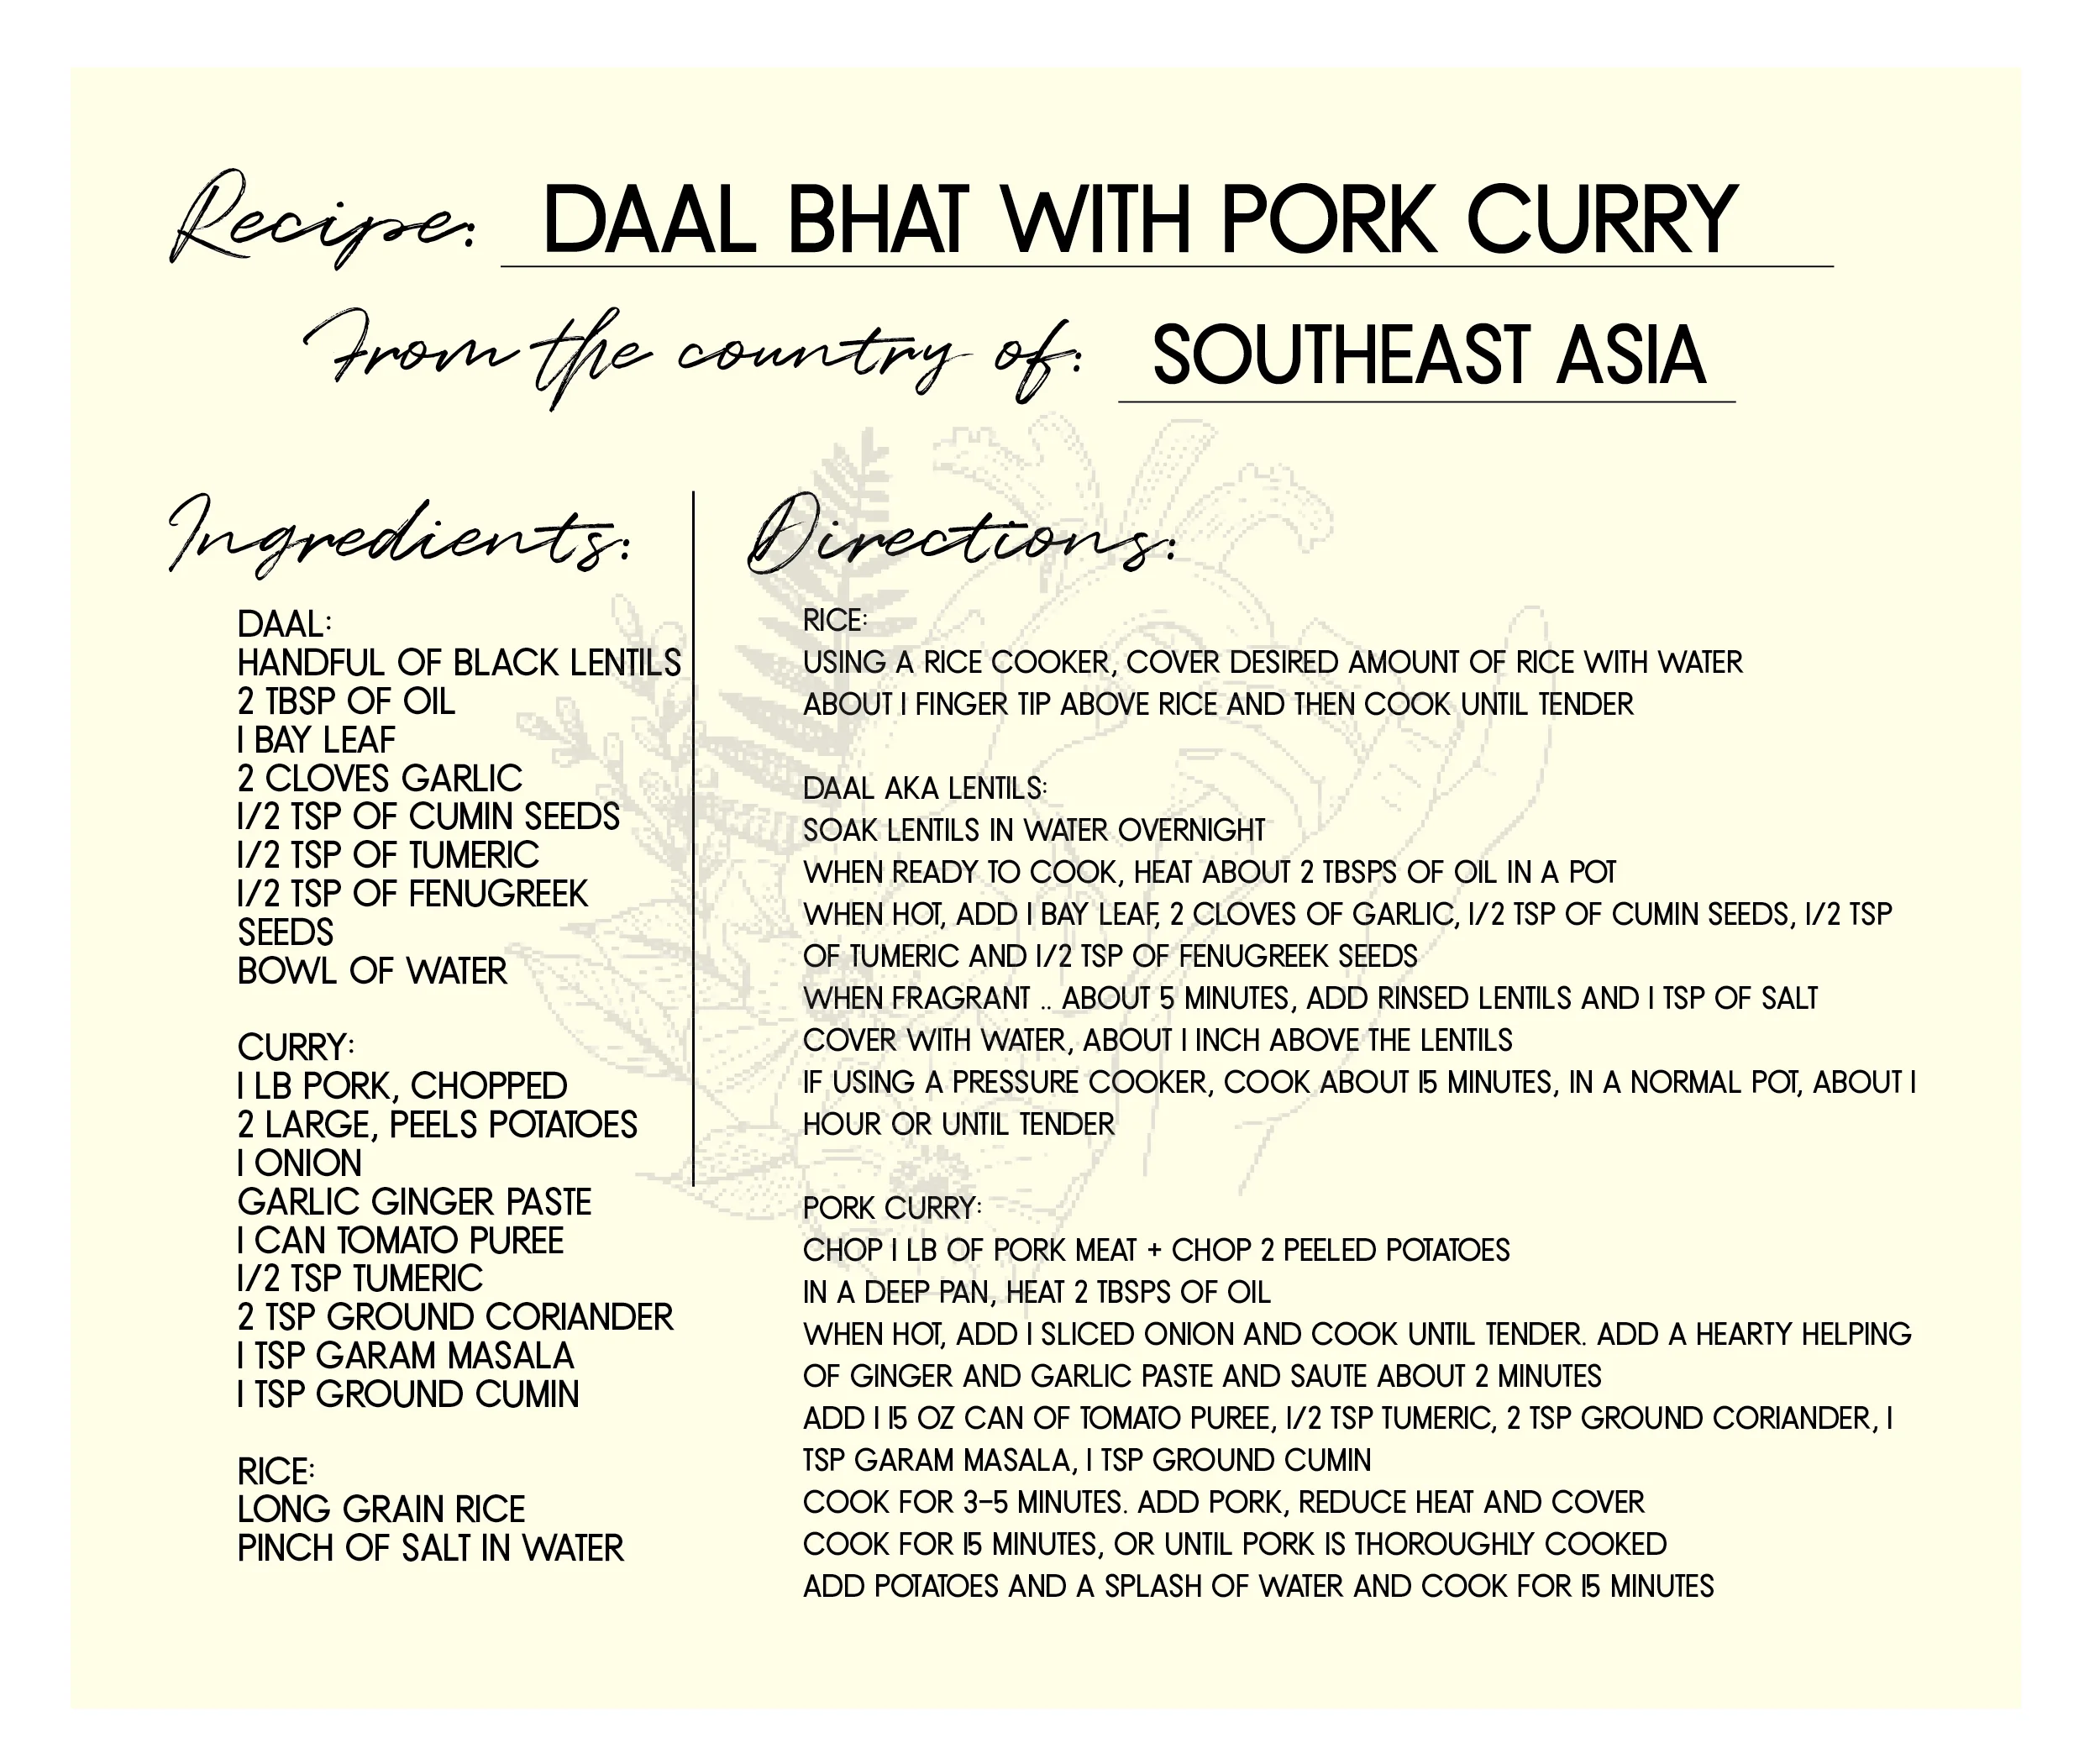 Recipe: DAAL BHAT WITH PORK CURRY
From the country of: SOUTHEAST ASIA
Ingredients:
DAAL:
HANDFUL OF BLACK LENTILS
2 TBSP OF OIL
1 BAY LEAF
2 CLOVES GARLIC
1/2 TSP OF CUMIN SEEDS
1/2 TSP OF TUMERIC
1/2 TSP OF FENUGREEK
SEEDS
BOWL OF WATER
CURRY:
1 LB PORK, CHOPPED
2 LARGE, PEELS POTATOES
1 ONION
GARLIC GINGER PASTE
1 CAN TOMATO PUREE
1/2 TSP TUMERIC
2 TSP GROUND CORIANDER
1 TSP GARAM MASALA
1 TSP GROUND CUMIN
RICE:
LONG GRAIN RICE
PINCH OF SALT IN WATER
Directions:
RICE:
USING A RICE COOKER, COVER DESIRED AMOUNT OF RICE WITH WATER
ABOUT 1 FINGER TIP ABOVE RICE AND THEN COOK UNTIL TENDER
DAAL AKA LENTILS:
SOAK LENTILS IN WATER OVERNIGHT
WHEN READY TO COOK, HEAT ABOUT 2 TBSPS OF OIL IN A POT
WHEN HOT, ADD 1 BAY LEAF, 2 CLOVES OF GARLIC, 1/2 TSP OF CUMIN SEEDS, 1/2 TSP
OF TUMERIC AND 1/2 TSP OF FENUGREEK SEEDS
WHEN FRAGRANT .. ABOUT 5 MINUTES, ADD RINSED LENTILS AND 1 TSP OF SALT
COVER WITH WATER, ABOUT 1 INCH ABOVE THE LENTILS
IF USING A PRESSURE COOKER, COOK ABOUT 15 MINUTES, IN A NORMAL POT, ABOUT 1
HOUR OR UNTIL TENDER
PORK CURRY:
CHOP 1 LB OF PORK MEAT + CHOP 2 PEELED POTATOES
IN A DEEP PAN, HEAT 2 TBSPS OF OIL
WHEN HOT, ADD 1 SLICED ONION AND COOK UNTIL TENDER. ADD A HEARTY HELPING
OF GINGER AND GARLIC PASTE AND SAUTE ABOUT 2 MINUTES
ADD 1 15 OZ CAN OF TOMATO PUREE, 1/2 TSP TUMERIC, 2 TSP GROUND CORIANDER, 1
TSP GARAM MASALA, 1 TSP GROUND CUMIN
COOK FOR 3-5 MINUTES. ADD PORK, REDUCE HEAT AND COVER
COOK FOR 15 MINUTES, OR UNTIL PORK IS THOROUGHLY COOKED
ADD POTATOES AND A SPLASH OF WATER AND COOK FOR 15 MINUTES